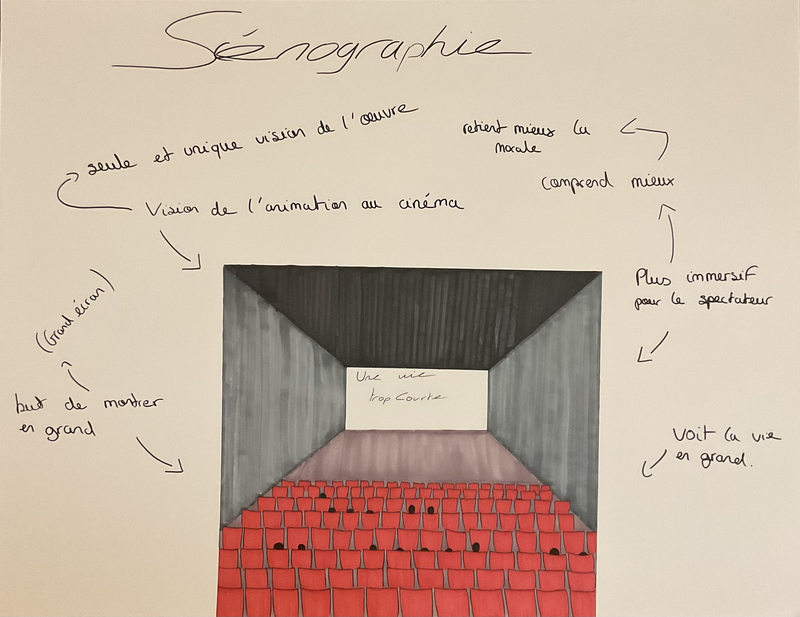 Scénographie
seule et unique vision de l'œuvre
Vision de l'animation au cinéma
retient mieux la
morale
comprend mieux
Plus immersif
pour le spectateur
(Grand écran)
but de montrer
en grand
Voit la vie
en grand.
Une vie
trop Courte